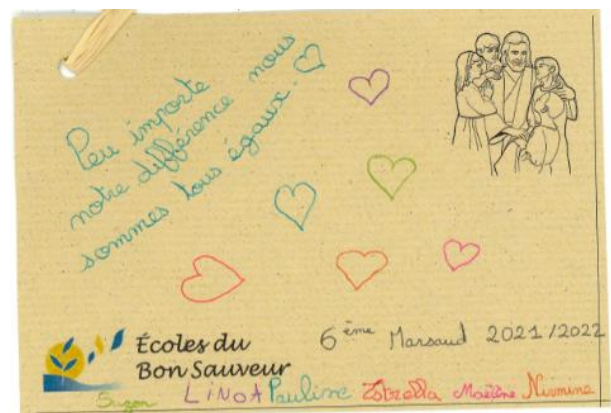 Peu importe
notre différence nous
sommes tous égaux.
Écoles du
Bon Sauveur
6ème Marsaud 2021/2022
Suzon LiNOA Pauline Estrella Maëline Nirmine